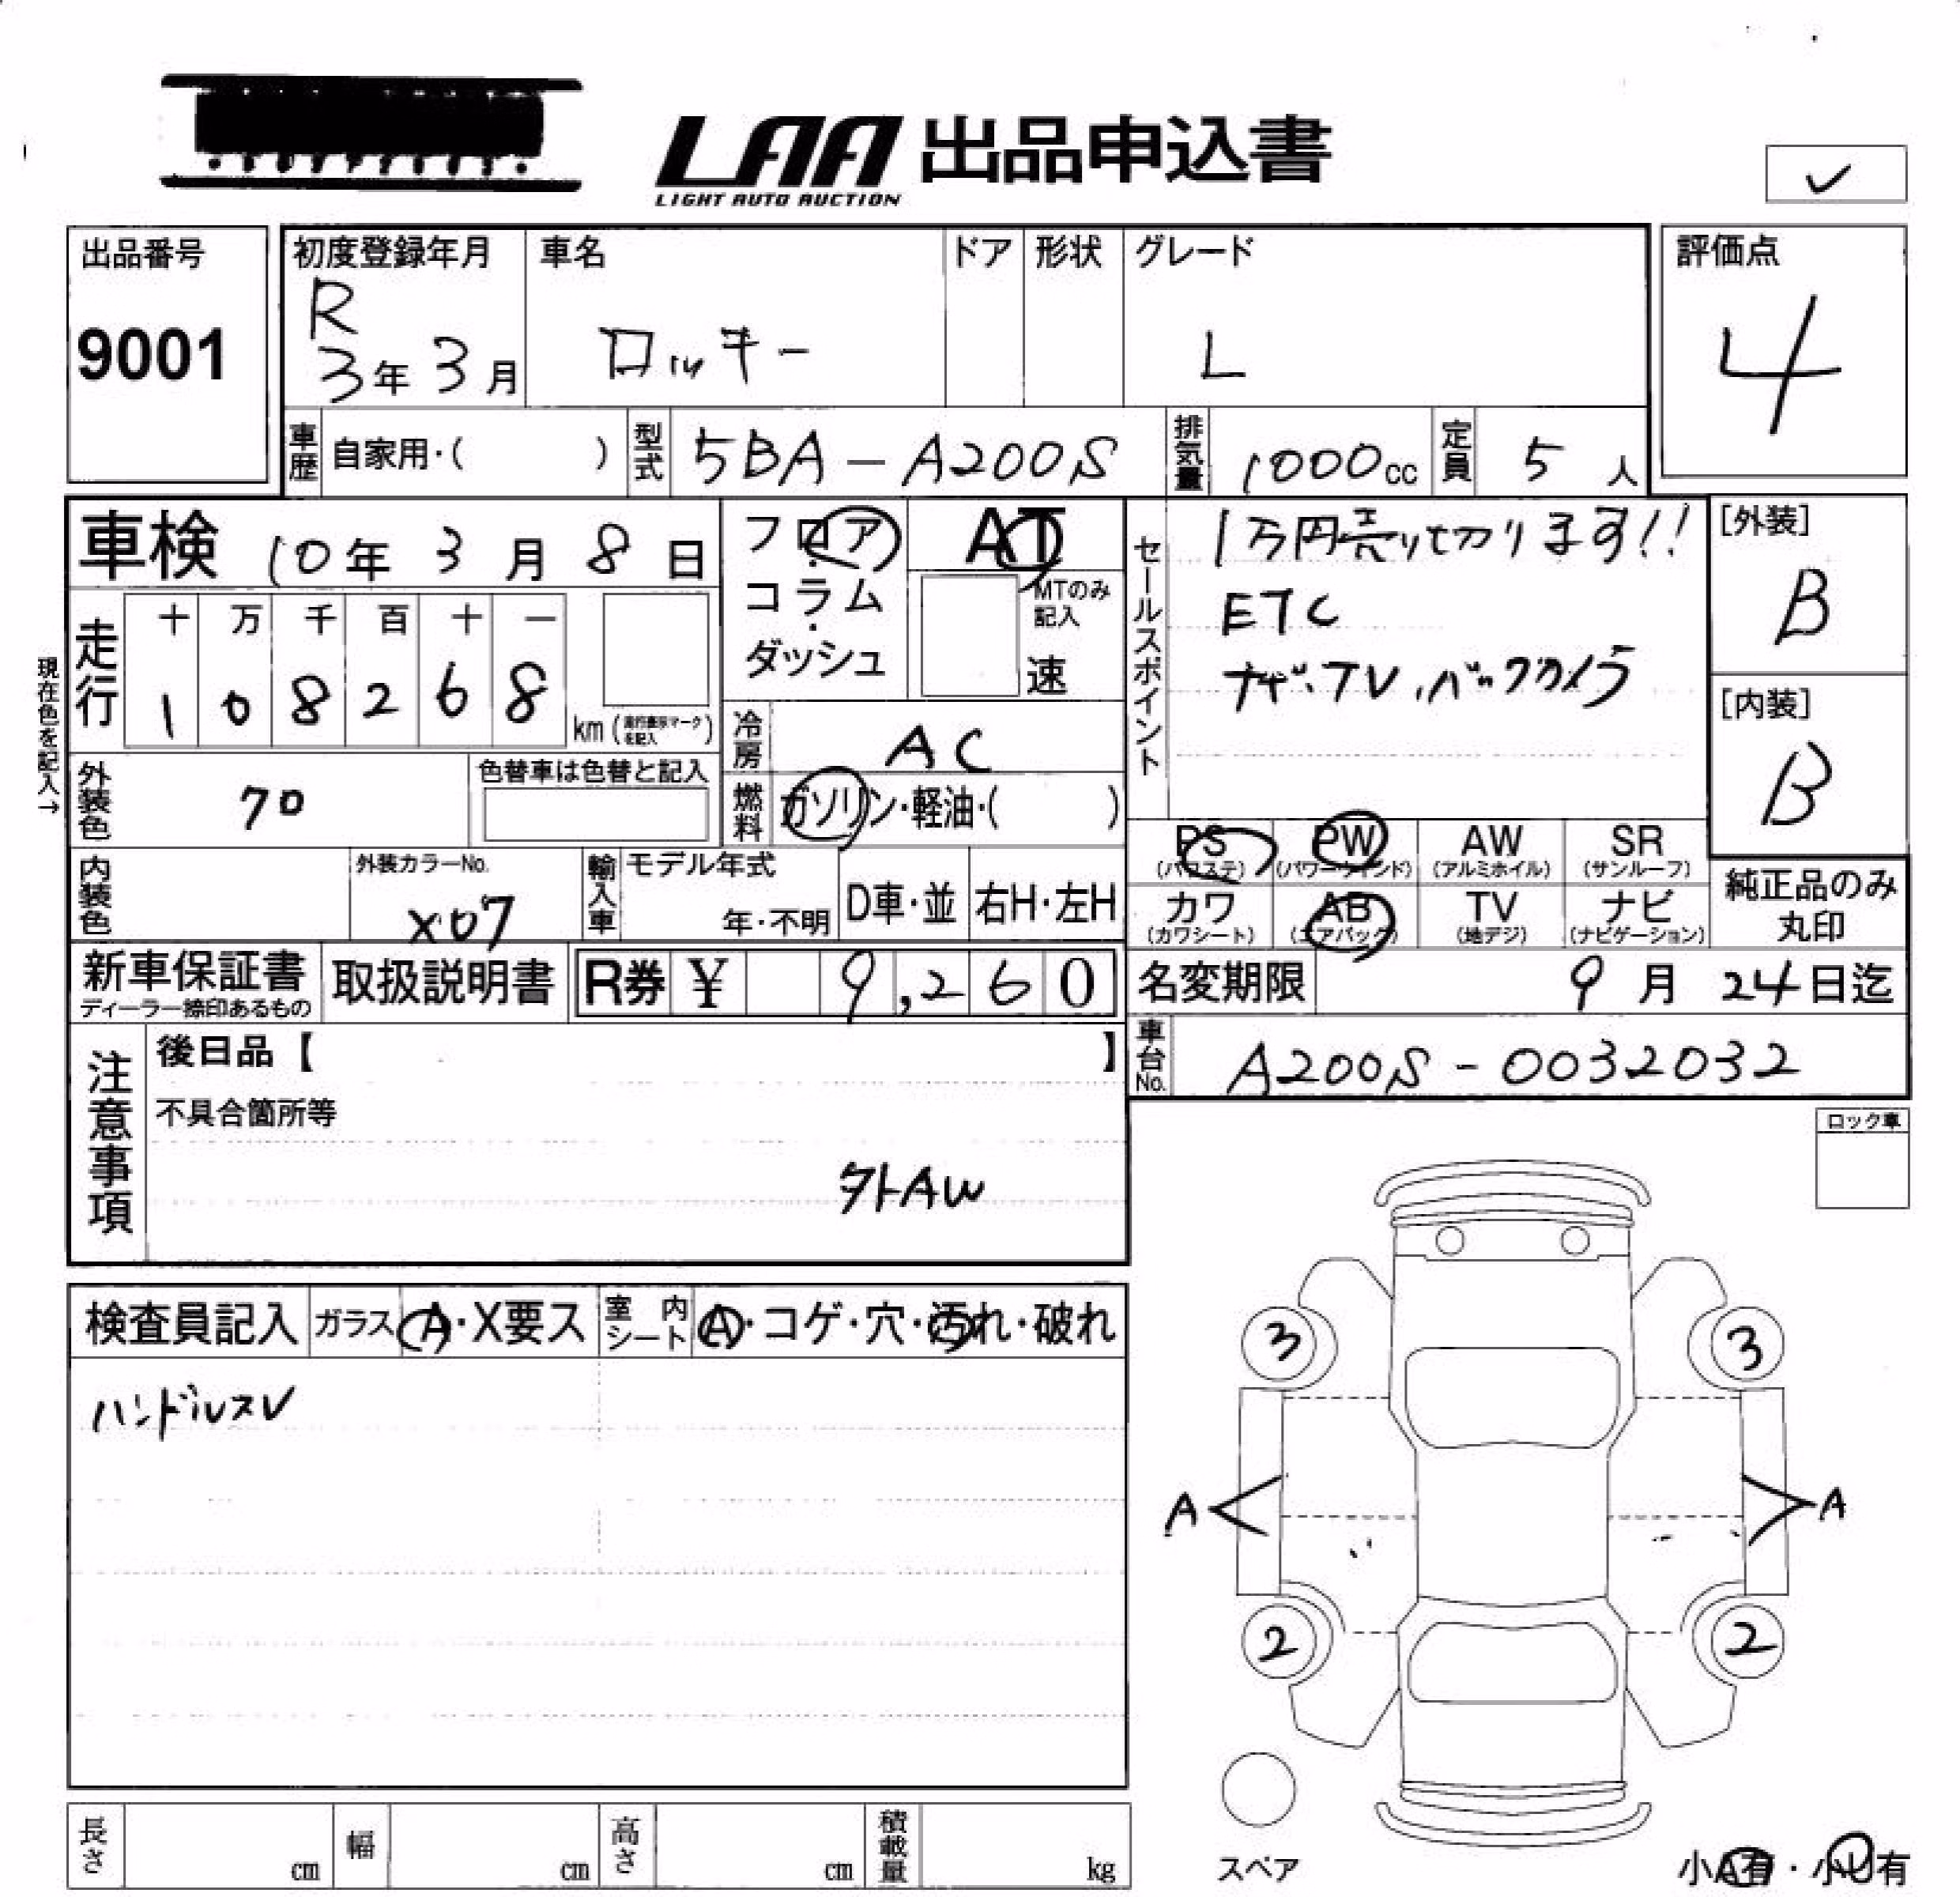 LAA 出品申込書
LIGHT AUTO AUCTION
✓
出品番号
9001
初度登録年月
R
3年3月
車名
ロッキー
ドア
形状
グレード
L
評価点
4
車歴
自家用・( )
型式
5BA-A200S
排気量
1000cc
定員
5人
車検 10年3月8日
フロア・コラム・ダッシュ
AT
MTのみ記入
速
セールスポイント
1万円売り切ります!!
ETC
ナビ・TV、バックカメラ
[外装]
B
[内装]
B
現在色を記入→
走行
十 万 千 百 十 一
1 0 8 2 6 8
km (走行表示マークを記入)
冷房
AC
外装色
70
色替車は色替と記入
燃料
ガソリン・軽油・( )
PS
(パワステ)
PW
(パワーウィンド)
AW
(アルミホイル)
SR
(サンルーフ)
カワ
(カワシート)
AB
(エアバック)
TV
(地デジ)
ナビ
(ナビゲーション)
純正品のみ
丸印
内装色
外装カラーNo.
X07
輸入車
モデル年式
年・不明
D車・並
右H・左H
新車保証書
ディーラー捺印あるもの
取扱説明書
R券 ¥ 9,260
名変期限
9月24日迄
車台No.
A200S-0032032
注意事項
後日品【 】
不具合箇所等
外AW
ロック車
検査員記入
ガラス
A・X要ス
室内シート
A・コゲ・穴・汚れ・破れ
ハンドルスレ
3 3
A A
2 2
スペア
小A有・小U有
長さ
cm
幅
cm
高さ
cm
積載量
kg